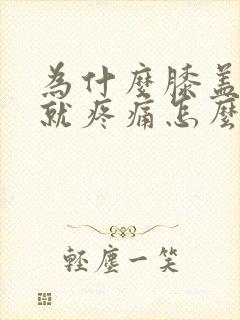 為什麼膝蓋
就疼痛怎麼
輕塵一笑